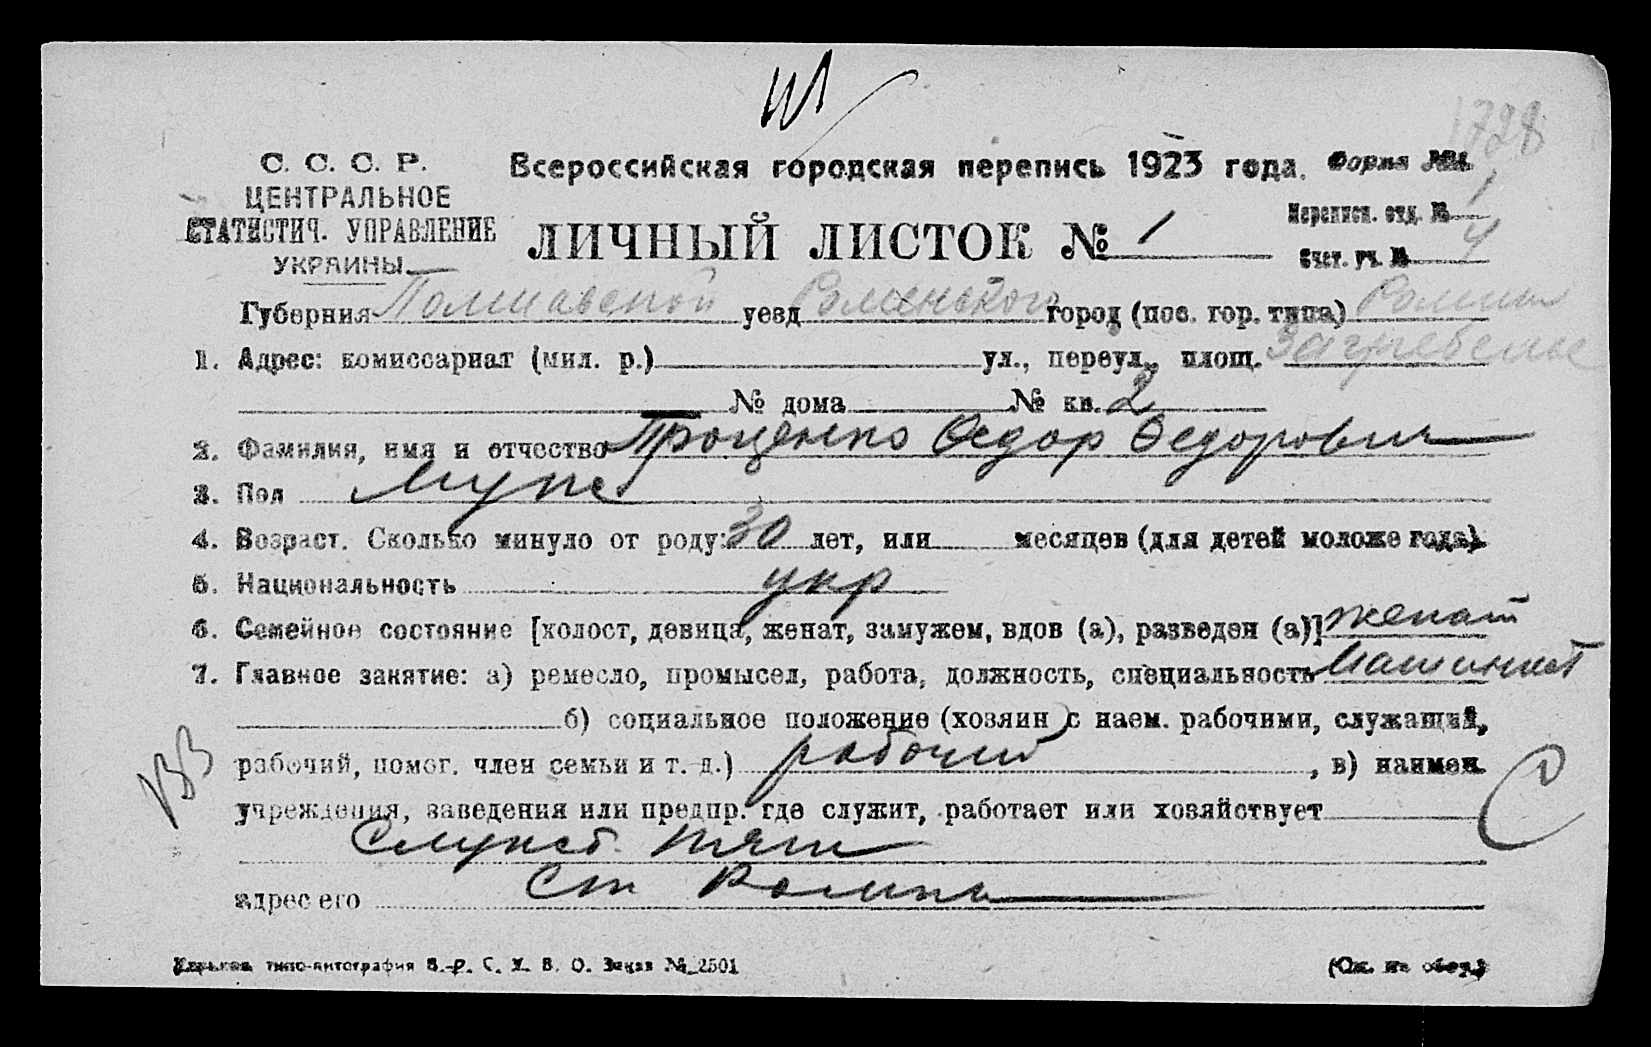 1728
С. С. С. Р.
ЦЕНТРАЛЬНОЕ
СТАТИСТИЧ. УПРАВЛЕНИЕ
УКРАИНЫ
Всероссийская городская перепись 1923 года. Форма №1.
ЛИЧНЫЙ ЛИСТОК № 1
Переписн. отд. № 1
Счет. уч. № 4
Губерния Полтавской уезд Роменского город (пос. гор. типа) Ромны
1. Адрес: комиссариат (мил. р.) ул., переул., площ. Загребелье
№ дома № кв. 2
2. Фамилия, имя и отчество Проценко Федор Федорович
3. Пол Мужс
4. Возраст. Сколько минуло от роду: 30 лет, или месяцев (для детей моложе года).
5. Национальность укр
6. Семейное состояние [холост, девица, женат, замужем, вдов (а), разведен (а)] женат
7. Главное занятие: а) ремесло, промысел, работа, должность, специальность Машинист
б) социальное положение (хозяин с наем. рабочими, служащий,
рабочий, помог. член семьи и т. д.) рабочий, в) наимен.
учреждения, заведения или предпр. где служит, работает или хозяйствует
тяги
адрес его Ст Ромны
Харьков типо-литография В.-Р. С. Х. В. О. Заказ № 2501
(См. на обор.)